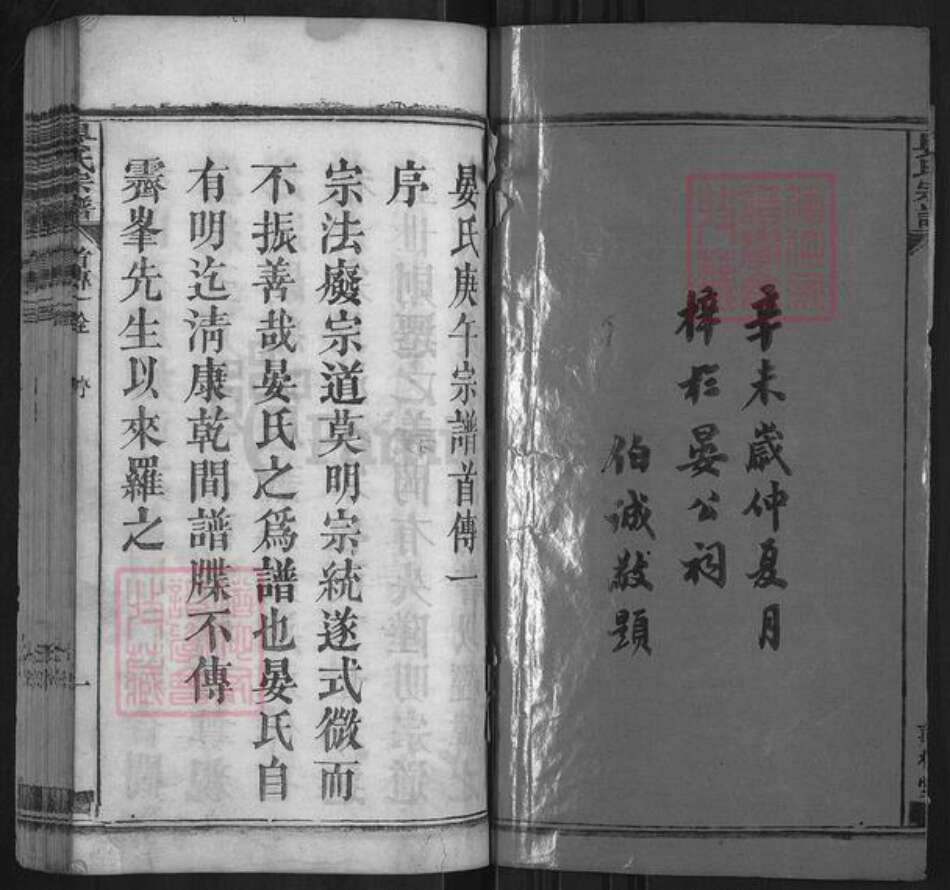 辛未歲仲夏月
梓於晏公祠
伯誠敬題
晏氏庚午宗譜首傳一
序
宗法廢宗道莫明宗統遂式微而
不振善哉晏氏之爲譜也晏氏自
有明迄淸康乾間譜牒不傳
霽峯先生以來羅之
晏氏宗譜
序
一